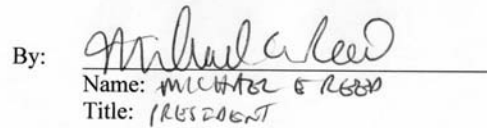 By: Michael E Reed
Name: MICHAEL E REED
Title: PRESIDENT